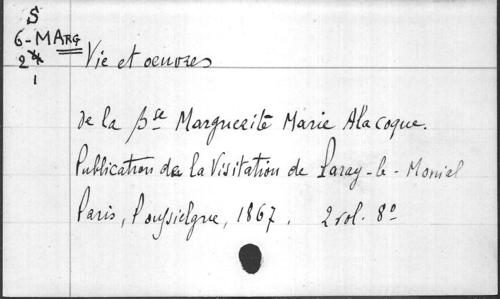 S
6-MARG
2
1
Vie et oeuvres
de la Bse Marguerite Marie Alacoque.
Publication de la Visitation de Paray-le-Monial
Paris, Poussielgue, 1867. 2 vol. 8º